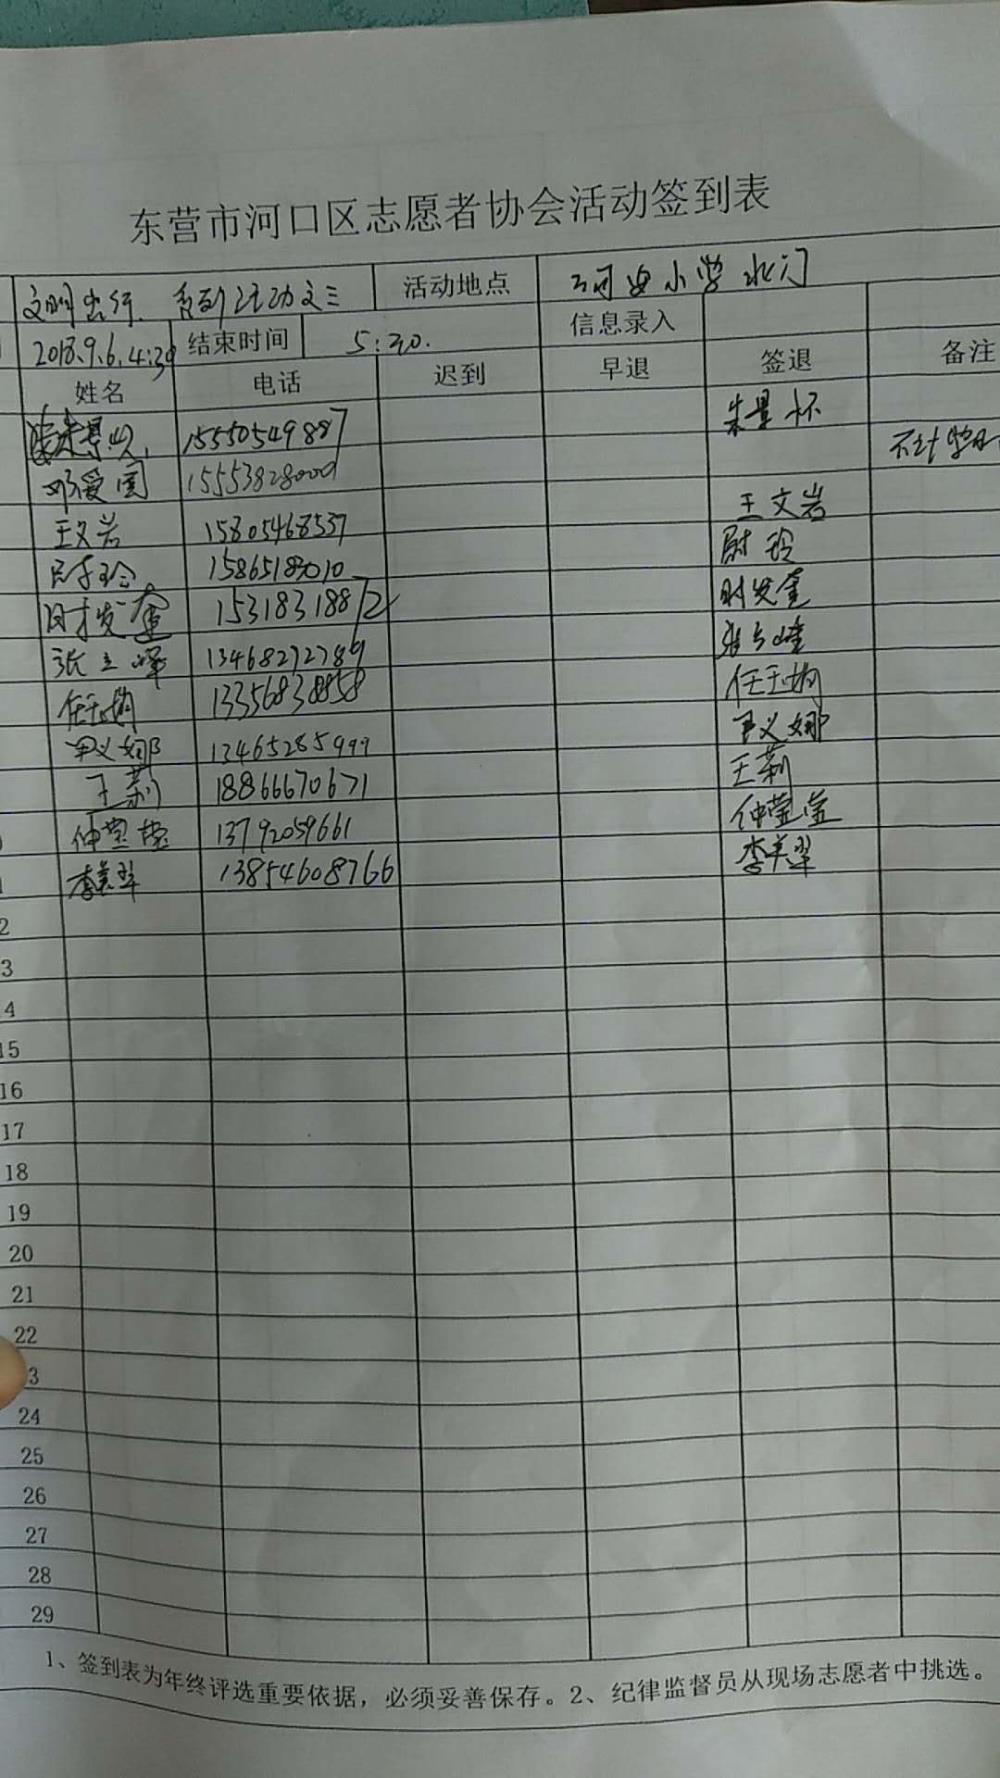 东营市河口区志愿者协会活动签到表
文明出行 系列活动之三 活动地点 河安小学北门
2018.9.6.4:30 结束时间 5:30. 信息录入
姓名 电话 迟到 早退 签退 备注
15550549887 朱景怀
邓爱国 15553828000 不计
王文岩 15805468537 王文岩
尉玲 15865183010 尉玲
时发奎 15318318872 时发奎
张立峰 13468272789 张立峰
任玉娟 13356838858 任玉娟
尹义娜 13465285999 尹义娜
王莉 18866670671 王莉
仲莹莹 13792059661 仲莹莹
李美翠 13854608766 李美翠
2
3
4
15
16
17
18
19
20
21
22
3
24
25
26
27
28
29
1、签到表为年终评选重要依据，必须妥善保存。2、纪律监督员从现场志愿者中挑选。